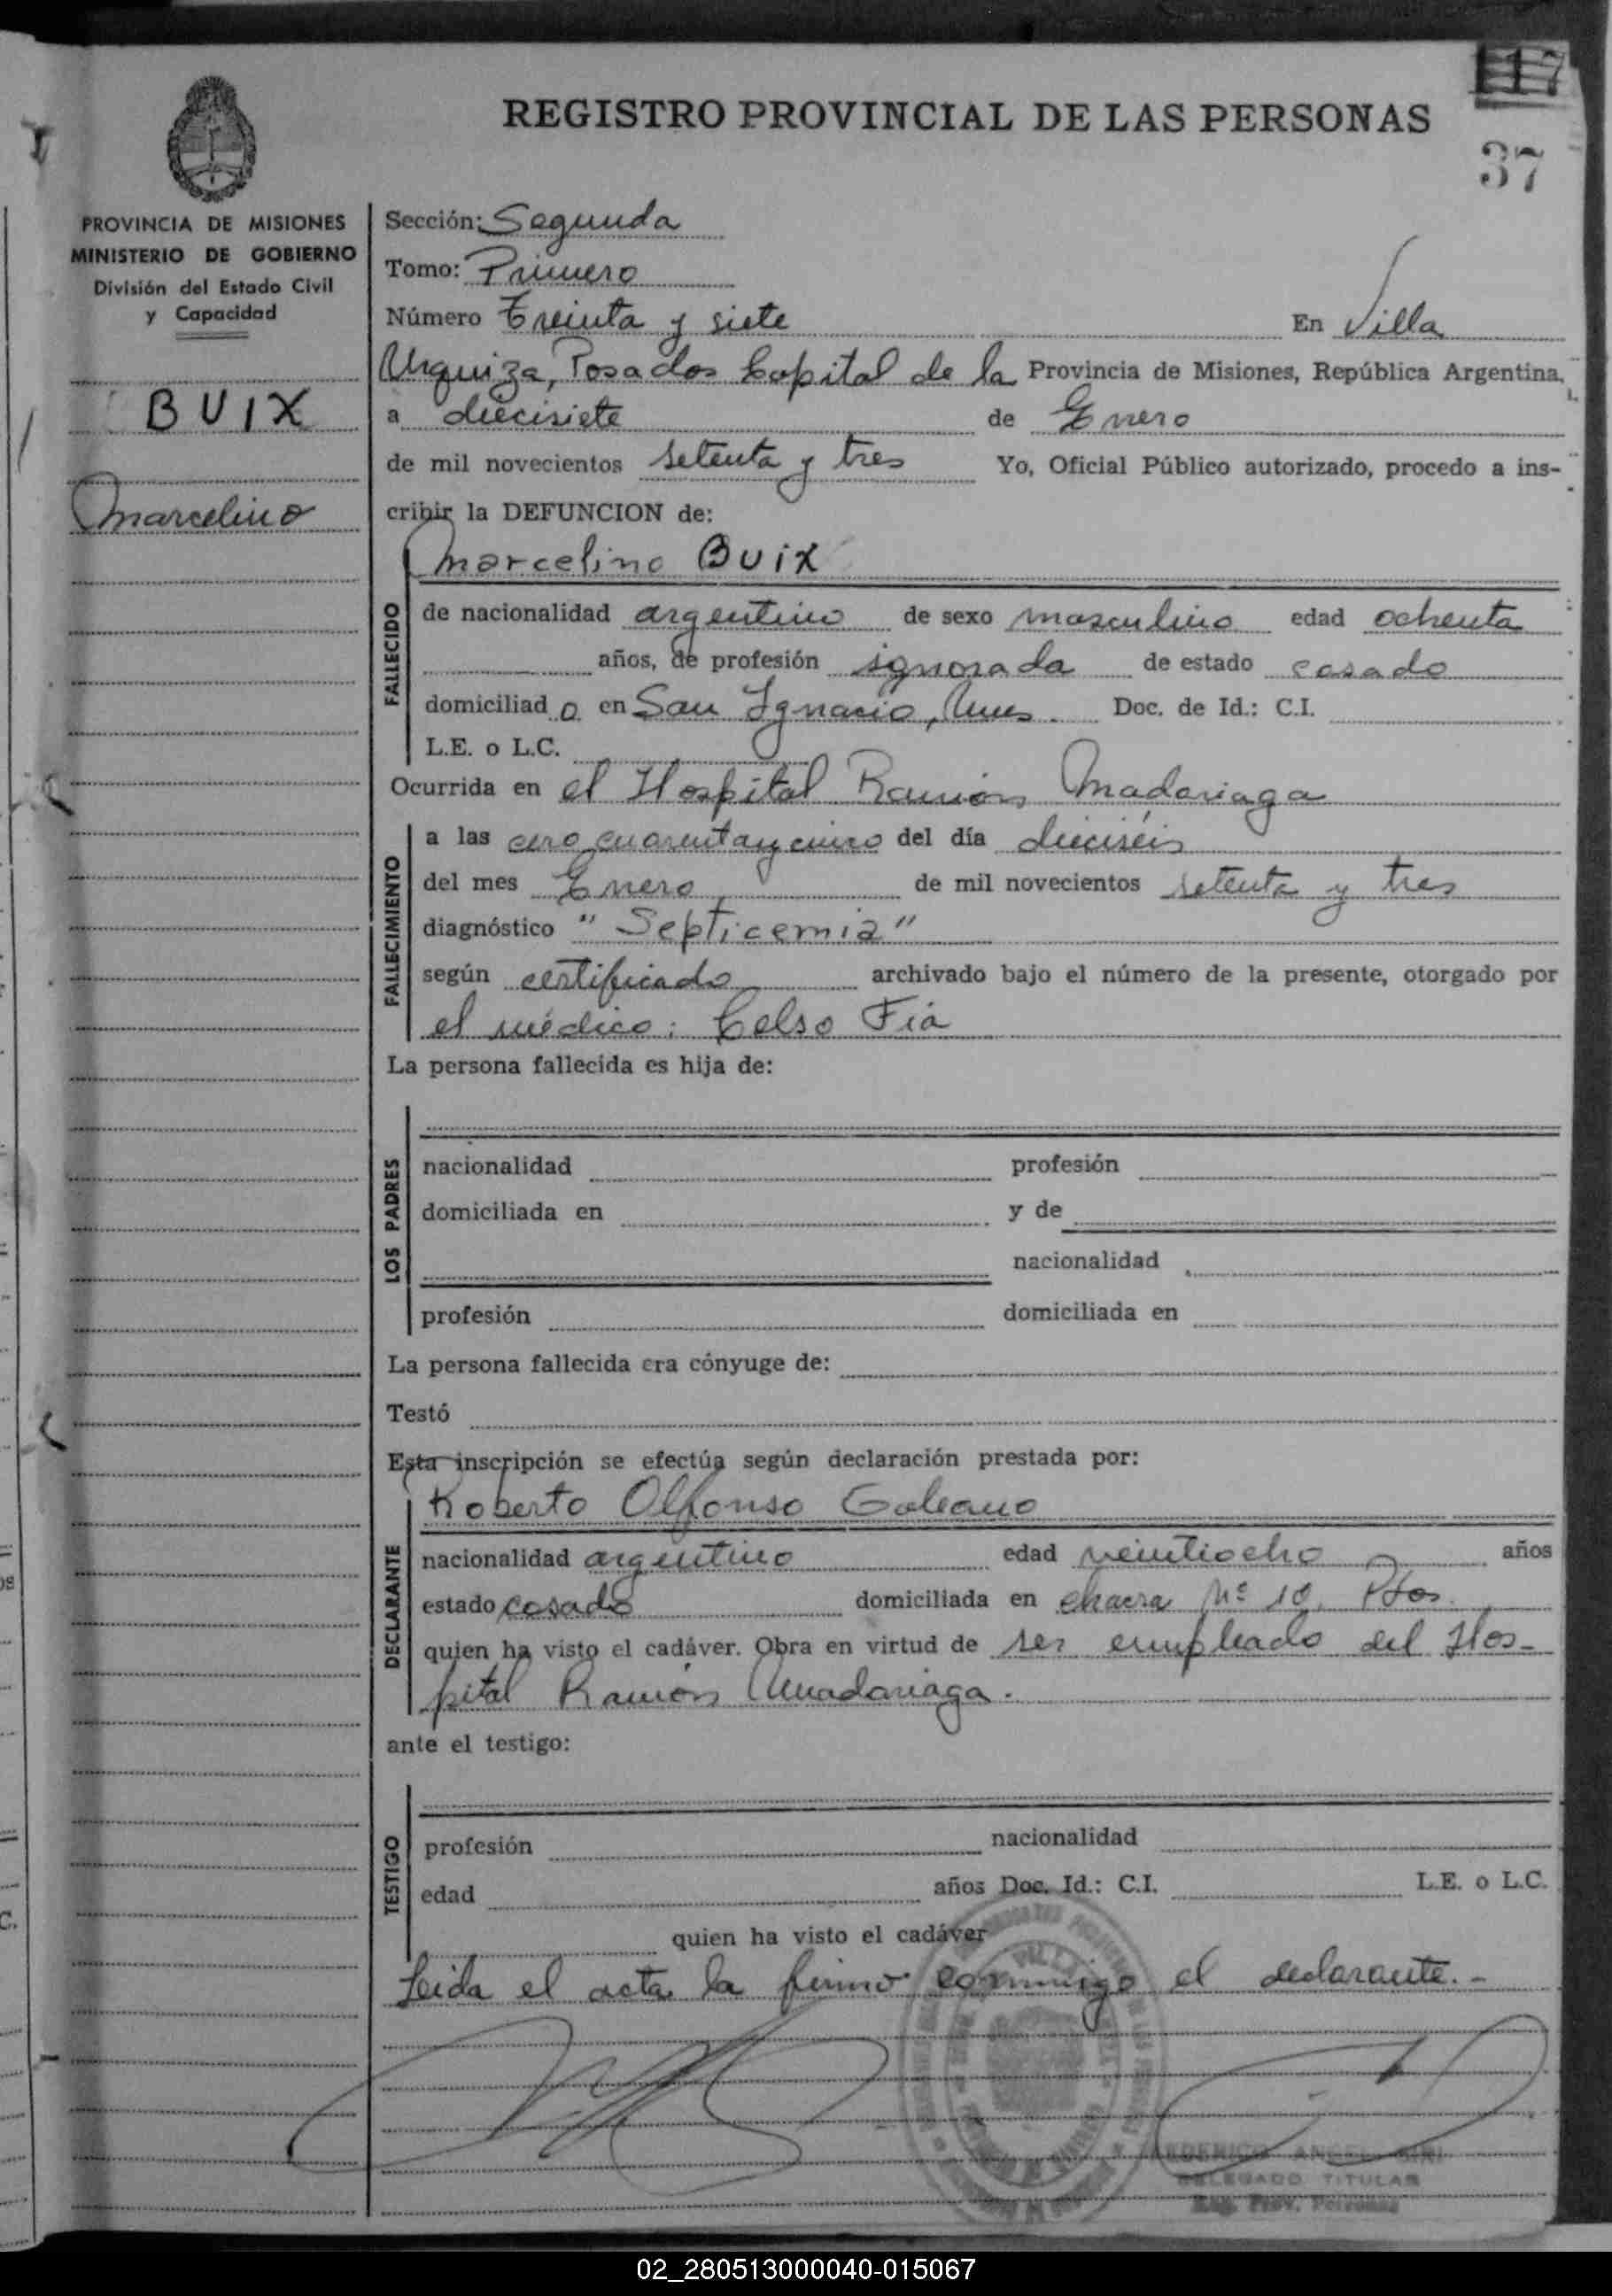 117
REGISTRO PROVINCIAL DE LAS PERSONAS
37
PROVINCIA DE MISIONES
MINISTERIO DE GOBIERNO
División del Estado Civil
y Capacidad
BUIX
Marcelino
Sección: Segunda
Tomo: Primero
Número Treinta y siete En Villa
Urquiza, Posadas Capital de la Provincia de Misiones, República Argentina,
a diecisiete de Enero
de mil novecientos setenta y tres Yo, Oficial Público autorizado, procedo a ins-
cribir la DEFUNCION de:
Marcelino BUIX
FALLECIDO
de nacionalidad argentino de sexo masculino edad ochenta
años, de profesión ignorada de estado casado
domiciliad o en San Ignacio, Mnes. Doc. de Id.: C.I.
L.E. o L.C.
Ocurrida en el Hospital Ramón Madariaga
FALLECIMIENTO
a las cero cuarenta y cinco del día dieciséis
del mes Enero de mil novecientos setenta y tres
diagnóstico "Septicemia"
según certificado archivado bajo el número de la presente, otorgado por
el médico: Celso Fia
La persona fallecida es hija de:
LOS PADRES
nacionalidad profesión
domiciliada en y de
nacionalidad
profesión domiciliada en
La persona fallecida era cónyuge de:
Testó
Esta inscripción se efectúa según declaración prestada por:
Roberto Alfonso Galeano
DECLARANTE
nacionalidad argentino edad veintiocho años
estado casado domiciliada en chacra Nº 10, Pdas.
quien ha visto el cadáver. Obra en virtud de ser empleado del Hos-
pital Ramón Madariaga.
ante el testigo:
TESTIGO
profesión nacionalidad
edad años Doc. Id.: C.I. L.E. o L.C.
quien ha visto el cadáver
Leida el acta la firmó conmigo el declarante.-
VILLA
ANGEL
DELEGADO TITULAR
Reg. Prov. Personas
02_280513000040-015067